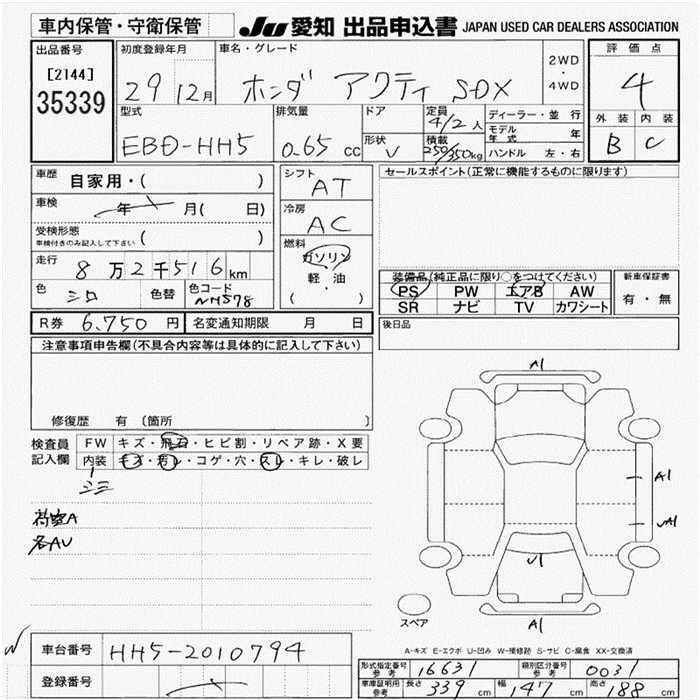 車内保管・守衛保管
JU 愛知 出品申込書 JAPAN USED CAR DEALERS ASSOCIATION
出品番号
[2144]
35339
初度登録年月
29 12月
車名・グレード
ホンダ アクティ SDX
2WD
・
4WD
評価点
4
外装 内装
B C
型式
EBD-HH5
排気量
0.65 cc
ドア
形状
V
定員
4/2人
積載
250/350kg
ディーラー・並行
モデル年式 年
ハンドル 左・右
車歴
自家用・( )
車検
年 月( 日)
受検形態
車検付きのみ記入して下さい ( )
走行
8万2千516km
色
シロ
色替
色コード
NH578
シフト
AT
冷房
AC
燃料
ガソリン
軽・油
( )
セールスポイント(正常に機能するものに限ります)
装備品(純正品に限り○をつけてください)
PS PW エアB AW
SR ナビ TV カワシート
新車保証書
有・無
R券 6.750 円 名変通知期限 月 日
後日品
注意事項申告欄(不具合内容等は具体的に記入して下さい)
修復歴 有 〔箇所 〕
検査員
記入欄
FW キズ・飛石・ヒビ割・リペア跡・X要
内装 キズ・汚レ・コゲ・穴・スレ・キレ・破レ
シミ
荷室A
各AU
A1
A1
UA1
U1
A1
スペア
A-キズ E-エクボ U-凹み W-補修跡 S-サビ C-腐食 XX-交換済
車台番号 HH5-2010794
登録番号
形式指定番号 参考 16631 類別区分番号 参考 0031
車庫証明用 参考 長さ 339 cm 幅 147 cm 高さ 188 cm